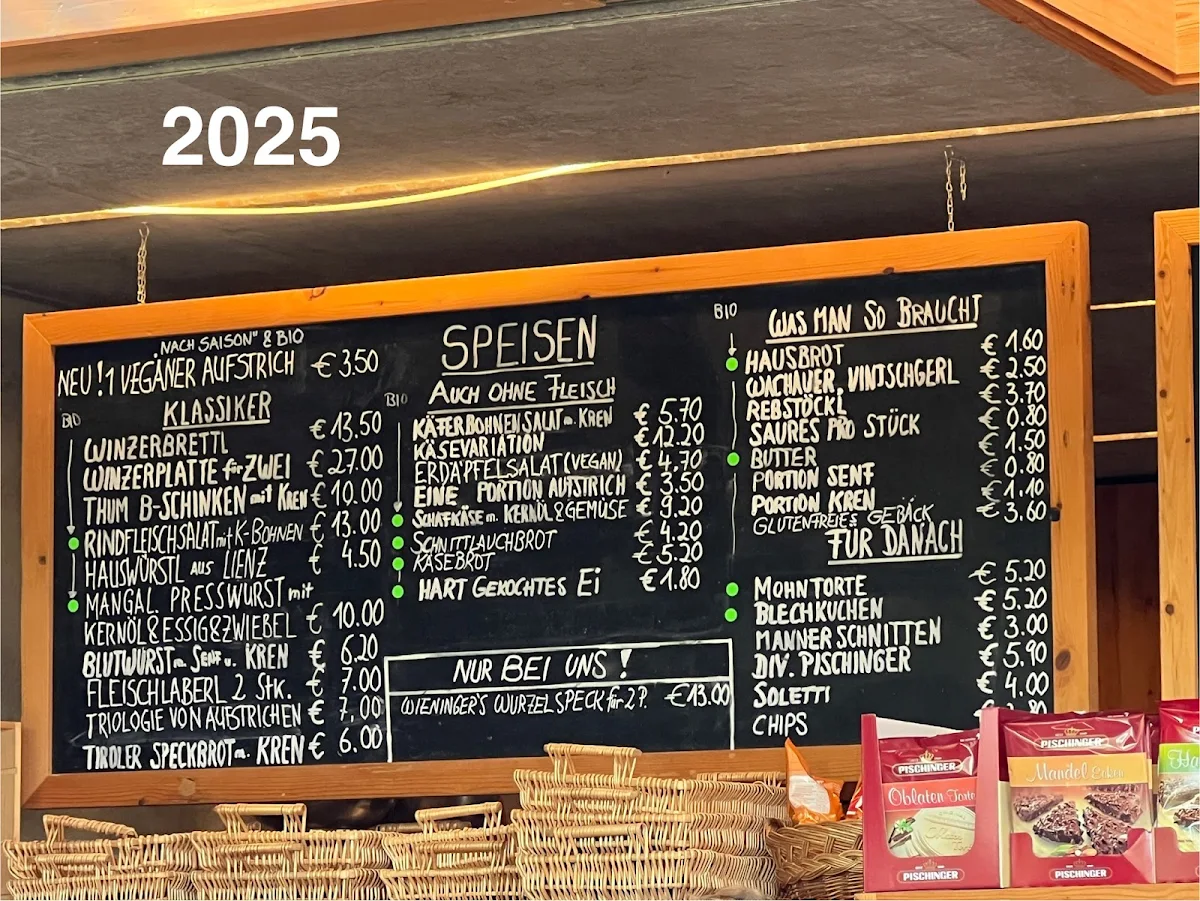 2025
„NACH SAISON" & BIO
NEU! 1 VEGANER AUFSTRICH € 3.50
BIO
KLASSIKER
WINZERBRETTL € 13.50
WINZERPLATTE für ZWEI € 27.00
THUM B-SCHINKEN mit KREN € 10.00
RINDFLEISCHSALAT mit K-BOHNEN € 13.00
HAUSWÜRSTL AUS LIENZ € 4.50
MANGAL. PRESSWURST mit
KERNÖL & ESSIG & ZWIEBEL € 10.00
BLUTWURST m. SENF u. KREN € 6.20
FLEISCHLABERL 2 STK. € 7.00
TRIOLOGIE VON AUFSTRICHEN € 7.00
TIROLER SPECKBROT m. KREN € 6.00
SPEISEN
BIO
AUCH OHNE FLEISCH
KÄFERBOHNENSALAT m. KREN € 5.70
KÄSEVARIATION € 12.20
ERDÄPFELSALAT (VEGAN) € 4.70
EINE PORTION AUFSTRICH € 3.50
SCHAFKÄSE m. KERNÖL & GEMÜSE € 9.20
SCHNITTLAUCHBROT € 4.20
KÄSEBROT € 5.20
HART GEKOCHTES EI € 1.80
NUR BEI UNS!
WIENINGER'S WURZELSPECK für 2 P. € 13.00
BIO
WAS MAN SO BRAUCHT
HAUSBROT € 1.60
WACHAUER, VINTSCHGERL € 2.50
REBSTÖCKL € 3.70
SAURES PRO STÜCK € 0.80
BUTTER € 1.50
PORTION SENF € 0.80
PORTION KREN € 1.10
GLUTENFREIES GEBÄCK € 3.60
FÜR DANACH
MOHNTORTE € 5.20
BLECHKUCHEN € 5.20
MANNER SCHNITTEN € 3.00
DIV. PISCHINGER € 5.90
SOLETTI € 4.00
CHIPS
PISCHINGER
Oblaten Torte
PISCHINGER
PISCHINGER
Mandel Ecken
PISCHINGER
Ha